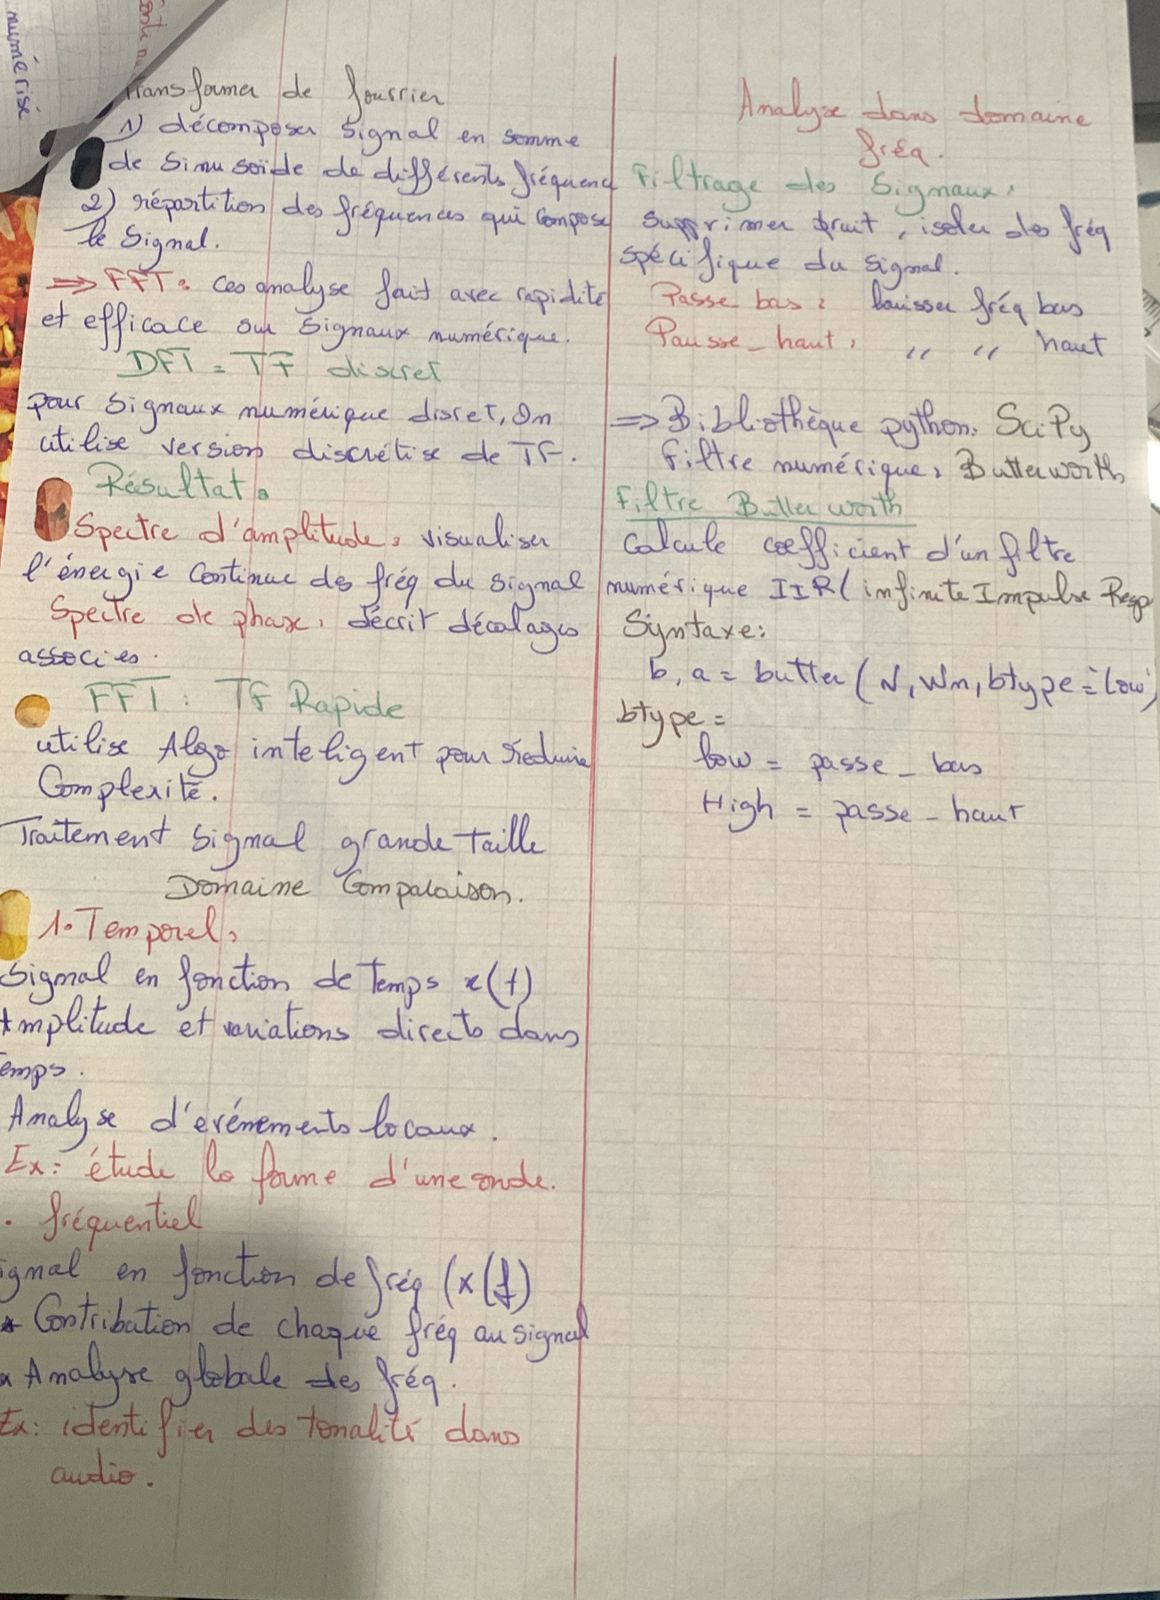 numérisé
Transformer de fourrier
1) décomposer signal en somme
de Sinusoide de différents fréquenc
2) répartition des fréquences qui compose
le signal.
=> FFT: ces analyse fait avec rapidité
et efficace sur signaux numérique.
DFT = TF discret
pour signaux numérique discret, On
utilise version discrétise de TF.
Résultat:
Spectre d'amplitude: visualiser
l'énergie continue des fréq du signal
Spectre de phase: décrit décalages
associés.
FFT: TF Rapide
utilise Algo inteligent pour réduire
Complexité.
Traitement signal grande taille
Domaine Comparaison.
1. Temporel:
Signal en fonction de Temps x(t)
Amplitude et variations directs dans
Temps.
Analyse d'evénements locaux.
Ex: étude la forme d'une onde.
. fréquentiel
ignal en fonction de fréq (x(f)
* Contribution de chaque fréq au signal
* Analyse globale des fréq.
Ex: identifier des tonalité dans
audio.
Analyse dans domaine
fréq.
Filtrage des Signaux:
Supprimer bruit, isoler des fréq
spécifique du signal.
Passe bas: laisser fréq bas
Pausse_haut: " " haut
=> Bibliothèque python: SciPy
Filtre numérique: Butterworth
Filtre Butter worth
Calcule coefficient d'un filtre
numérique IIR (infinite Impulse Resp
Syntaxe:
b, a = butter (N, Wn, btype='Low')
btype =
low = passe_bas
High = passe_haut